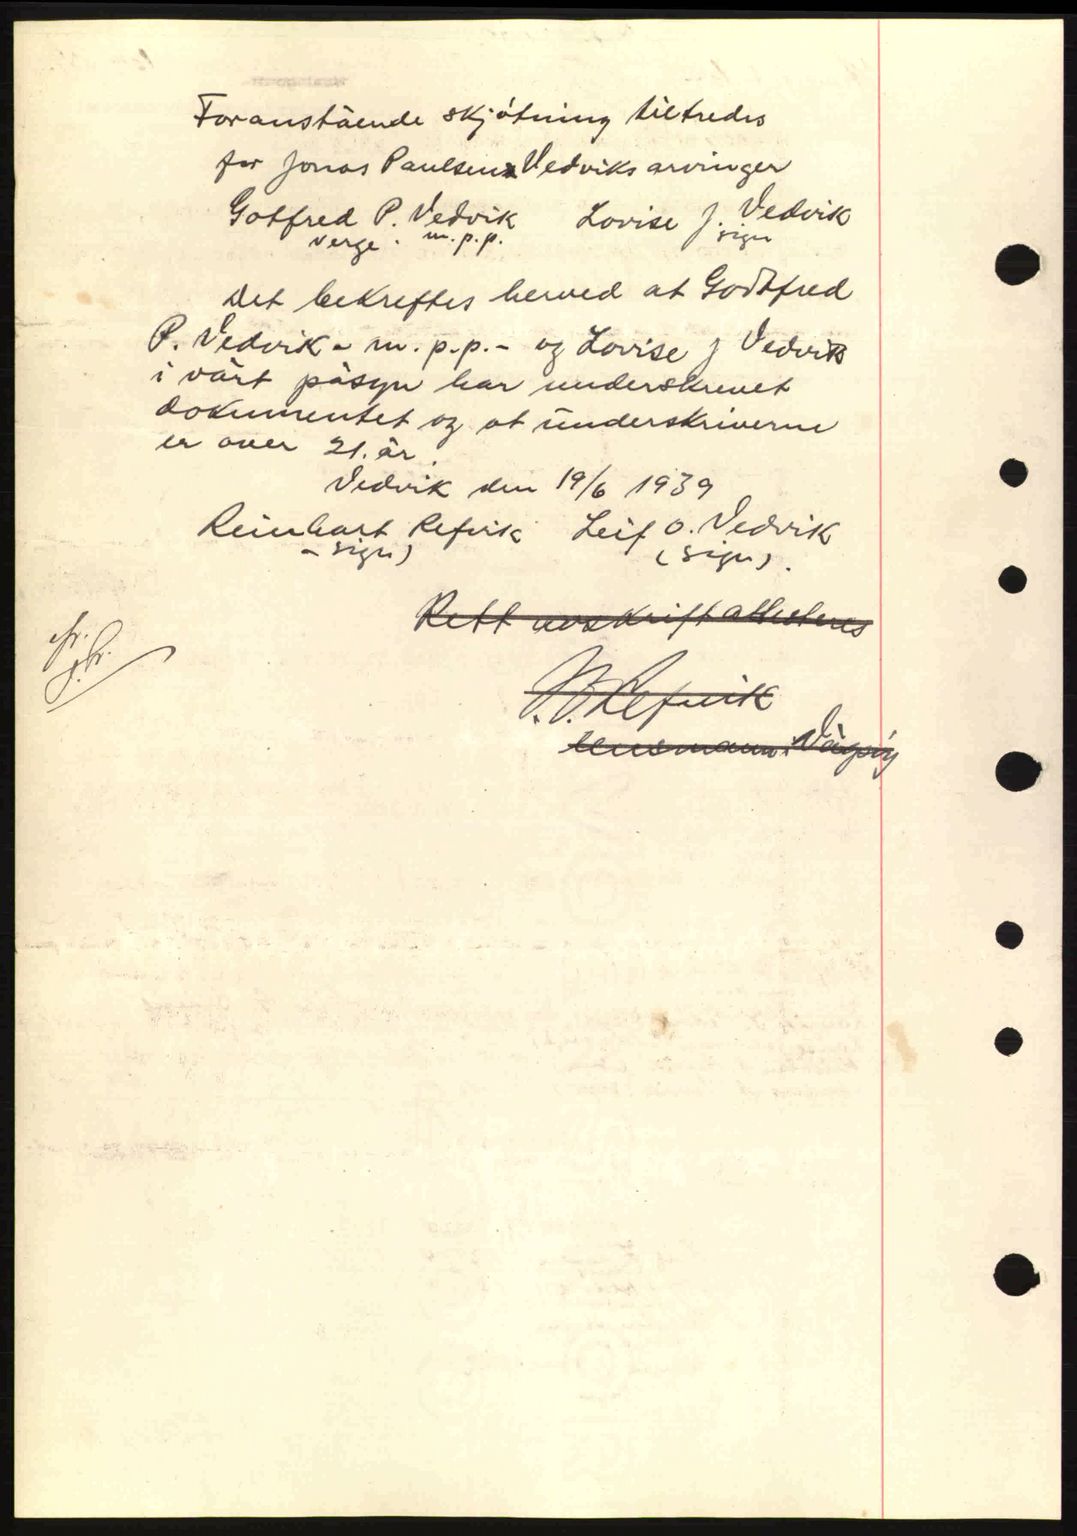 Foranstående skjøtning tiltredes
for Jonas Paulsen Vedviks arvinger
Gotfred P. Vedvik   Lovise J. Vedvik
verge. m.p.p.   sign
Det bekreftes herved at Godtfred
P. Vedvik - m.p.p. - og Lovise J Vedvik
i vårt påsyn har underskrevet
dokumentet og at underskriverne
er over 21. år.
Vedvik den 19/6 1939
Reinhart Refvik   Leif O. Vedvik
- sign)   (sign).
Rett avskrift attesteres
Refvik
lensmann i Vågsøy